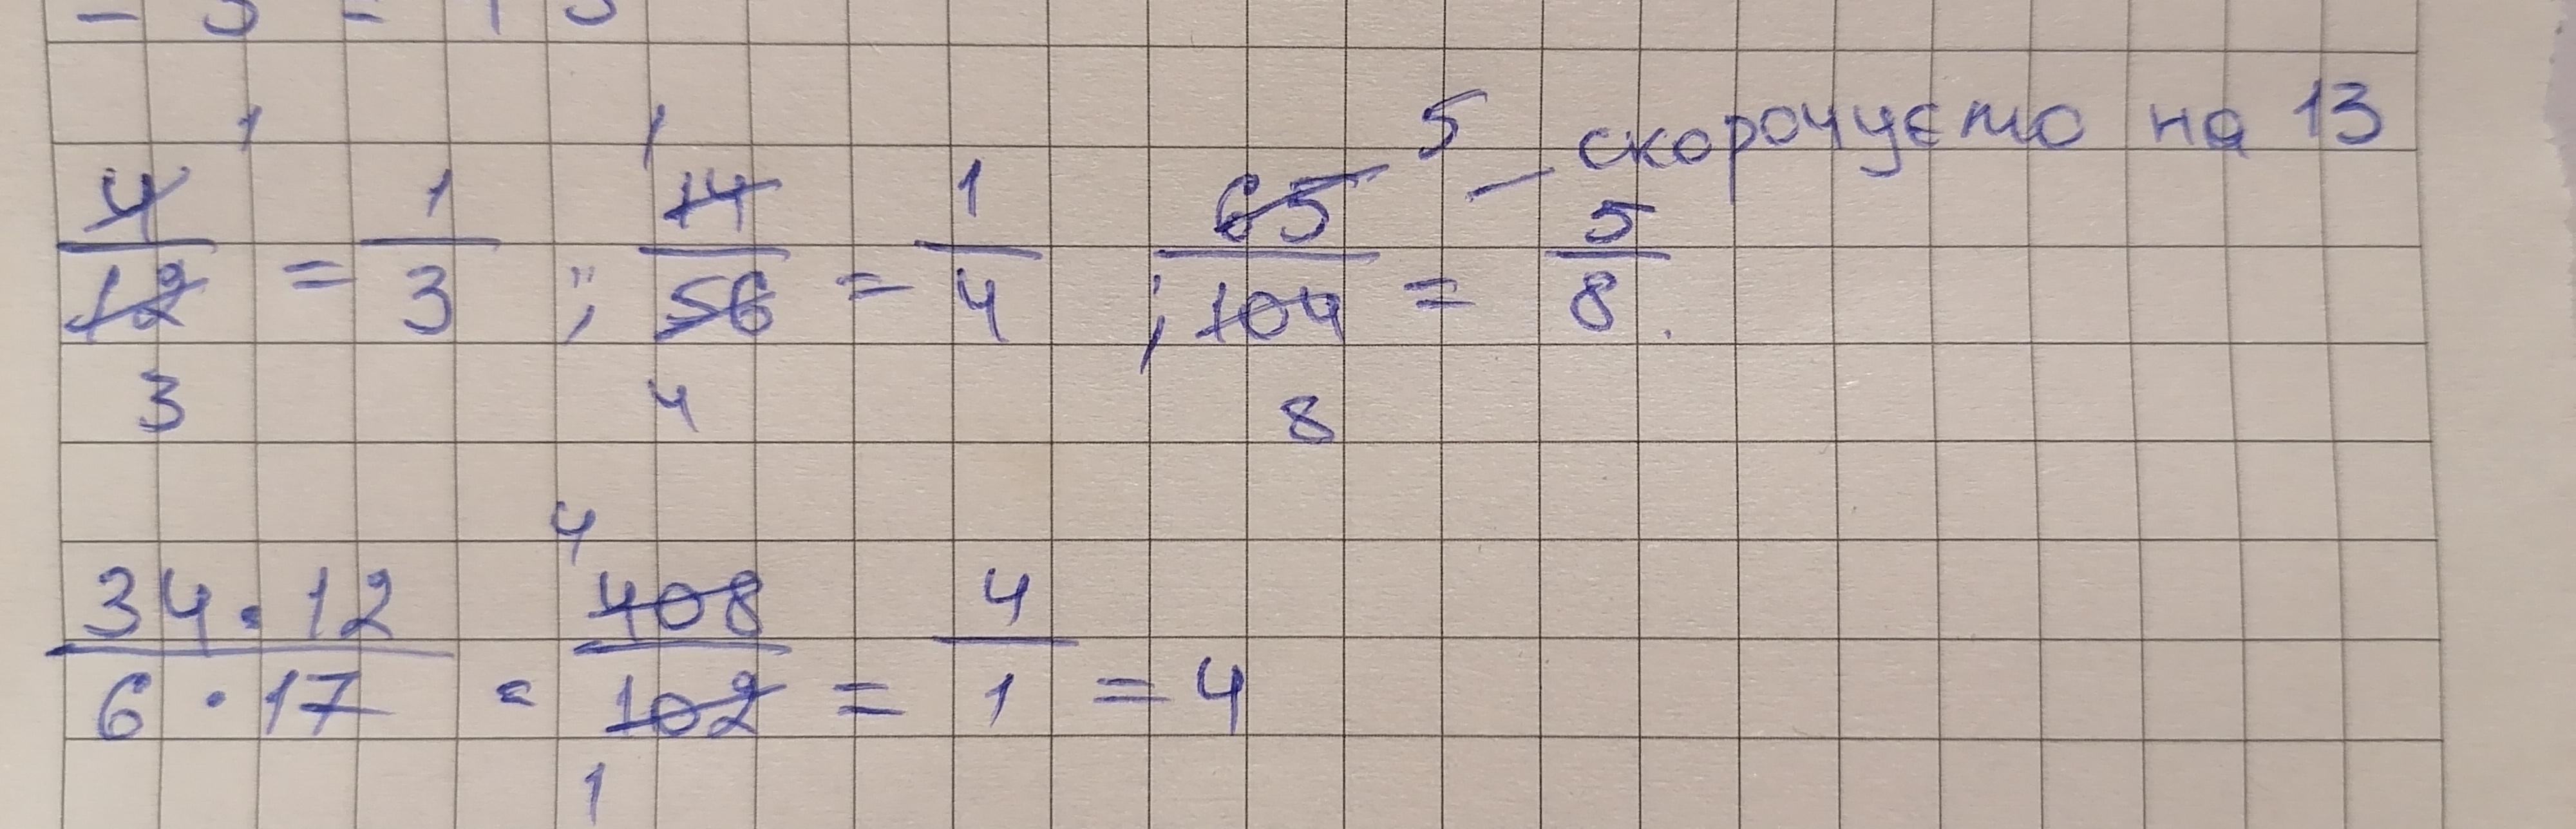 1 1 5 – скорочуємо на 13
4/12 = 1/3 ; 14/56 = 1/4 ; 65/104 = 5/8.
3 4 8
4
34·12/6·17 = 408/102 = 4/1 = 4
1